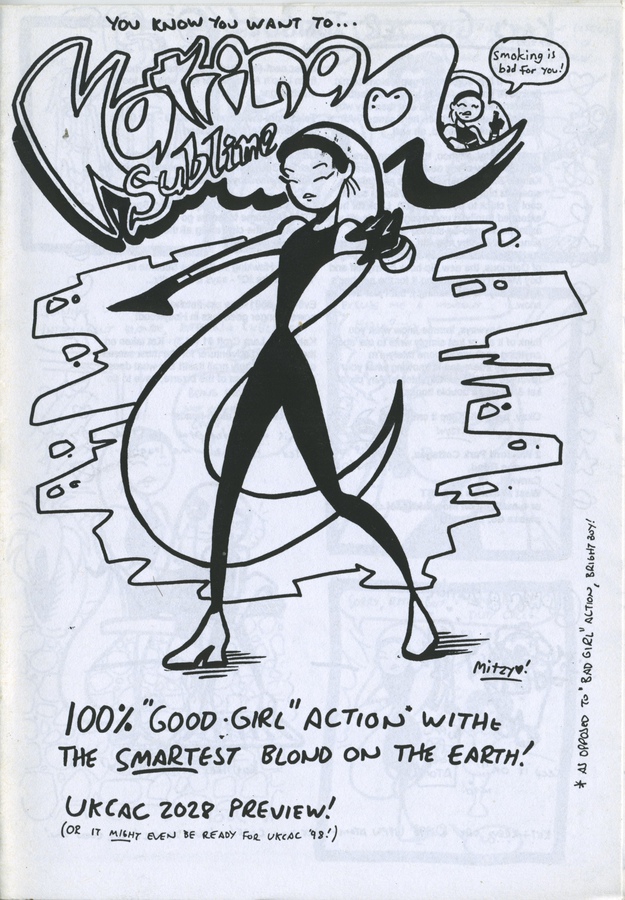 YOU KNOW YOU WANT TO...
Katrina
Sublime
Smoking is
bad for you!
Mitzy♥!
100% "GOOD-GIRL" ACTION* WITHE
THE SMARTEST BLOND ON THE EARTH!
UKCAC 2028 PREVIEW!
(OR IT MIGHT EVEN BE READY FOR UKCAC '98!)
* AS OPPOSED TO "BAD GIRL" ACTION, BRIGHT BOY!